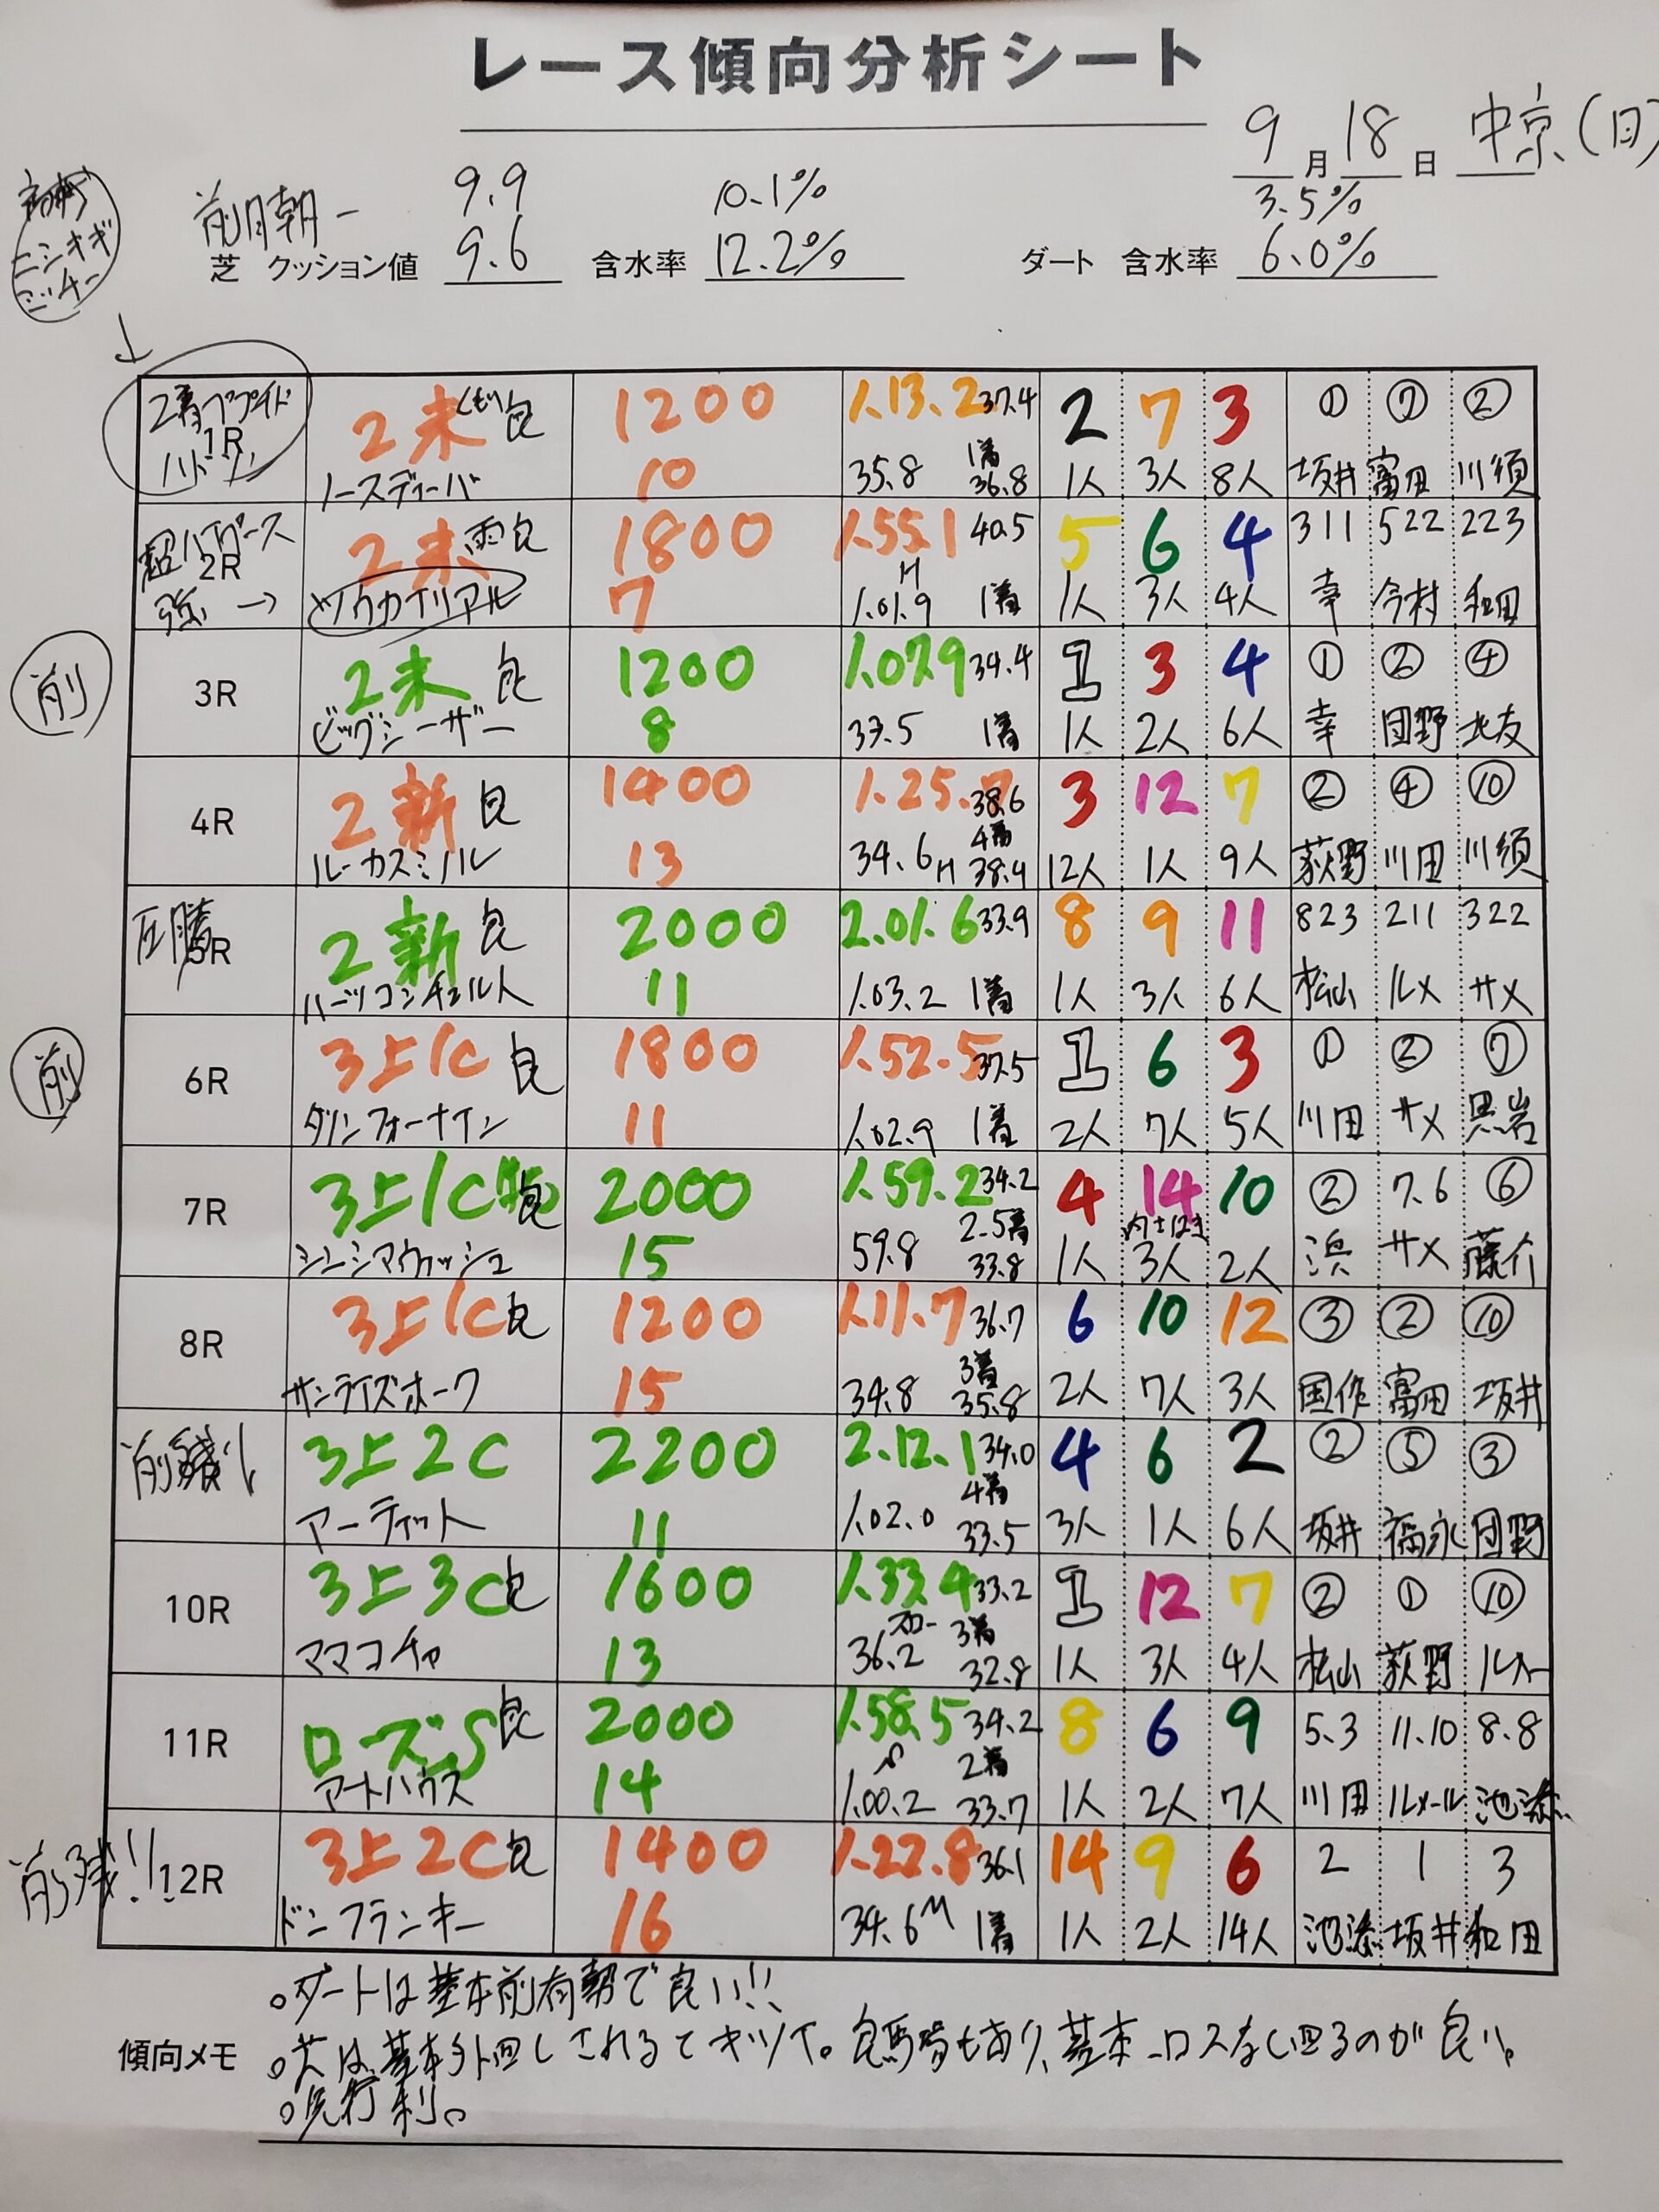 レース傾向分析シート
9月18日 中京(日)
前日朝- 9.9 10.1% 3.5%
芝 クッション値 9.6 含水率 12.2% ダート 含水率 6.0%
ニシキギ
↓
2着
1R 2未 くもり 良 1200 1.13.2 37.4 2 7 3 ① ⑦ ②
ノースディーバ 10 35.8 1着 36.8 1人 3人 8人 坂井 富田 川須
超ハイペース
2R 2未 雨良 1800 1.55.1 40.5 5 6 4 311 522 223
強い→ ツウカイリアル 7 H 1.01.9 1着 1人 3人 4人 幸 今村 和田
前 3R 2未 良 1200 1.07.9 34.4 1 3 4 ① ② ④
ビッグシーザー 8 33.5 1着 1人 2人 6人 幸 団野 北友
4R 2新 良 1400 1.25.7 38.6 3 12 7 ② ④ ⑩
ルーカスミノル 13 34.6H 4着 38.4 12人 1人 9人 荻野 川田 川須
圧勝 5R 2新 良 2000 2.01.6 33.9 8 9 11 823 211 322
ハーツコンチェルト 11 1.03.2 1着 1人 3人 6人 松山 ルメ サメ
前 6R 3上1C 良 1800 1.52.5 37.5 1 6 3 ① ② ⑦
タリンフォーナイン 11 1.02.9 1着 2人 7人 5人 川田 サメ 黒岩
7R 3上1C 良 2000 1.59.2 34.2 4 14 10 ② 7.6 ⑥
シンシマウィッシュ 15 59.8 2.5着 33.8 1人 3人 2人 浜 サメ 藤介
8R 3上1C 良 1200 1.11.7 36.7 6 10 12 ③ ② ⑩
サンライズホーク 15 34.8 3着 35.8 2人 7人 3人 国作 富田 坂井
前残り 3上2C 2200 2.12.1 34.0 4 6 2 ② ⑤ ③
アーティット 11 1.02.0 4着 33.5 3人 1人 6人 坂井 福永 団野
10R 3上3C 良 1600 1.33.4 33.2 1 12 7 ② ① ⑩
ママコチャ 13 36.2 スロー 3着 32.8 1人 3人 4人 松山 荻野 ルメール
11R ローズS 良 2000 1.58.5 34.2 8 6 9 5.3 11.10 8.8
アートハウス 14 S 1.00.2 2着 33.7 1人 2人 7人 川田 ルメール 池添
前残!! 12R 3上2C 良 1400 1.22.8 36.1 14 9 6 2 1 3
ドンフランキー 16 34.6M 1着 1人 2人 14人 池添 坂井 和田
。ダートは基本前有勢で良い!!
傾向メモ 。芝は、基本外回しされるとキツイ。良馬場もあり、基本ロスなし回るのが良い。
。先行有利。